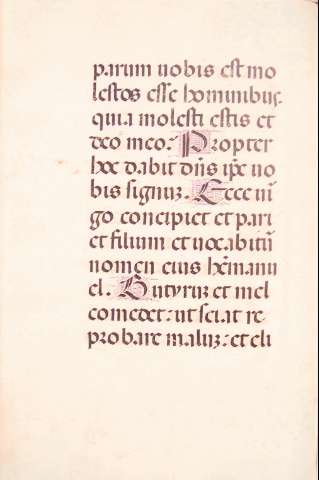 parum uobis est mo
lestos esse hominibus
quia molesti estis et
deo meo. Propter
hoc dabit dñs ip̃e uo
bis signuꝫ. Ecce uir̃
go concipiet et pari
et filium et uocabitũ
nomen eius hẽmanu
el. Butyruꝫ et mel
comedet: ut sciat re
probare maluꝫ: et eli